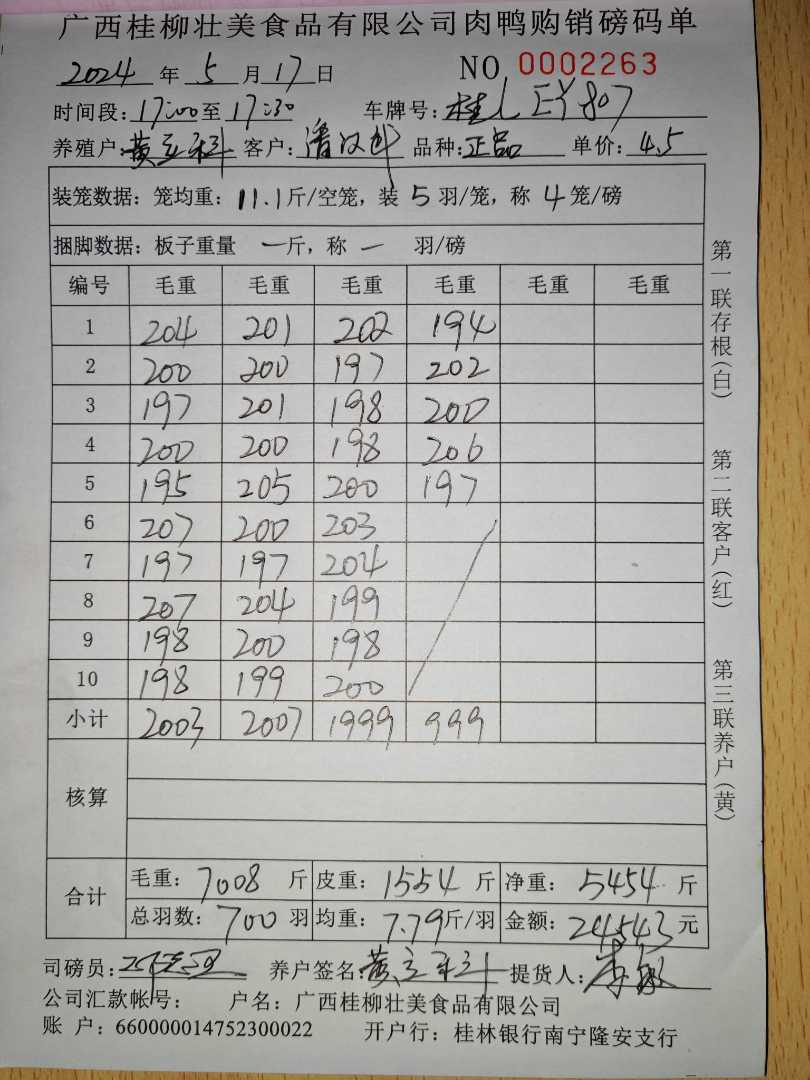 广西桂柳壮美食品有限公司肉鸭购销磅码单
2024年5月17日 NO 0002263
时间段:17:00至17:30 车牌号:桂L EY807
养殖户:黄立科 客户: 品种:正品 单价:4.5
装笼数据:笼均重:11.1斤/空笼,装5羽/笼,称4笼/磅
捆脚数据:板子重量 一斤,称一 羽/磅
编号 毛重 毛重 毛重 毛重 毛重 毛重
1 204 201 202 194
2 200 200 197 202
3 197 201 198 200
4 200 200 198 206
5 195 205 200 197
6 207 200 203
7 197 197 204
8 207 204 199
9 198 200 198
10 198 199 200
小计 2003 2007 1999 999
核算
合计 毛重:7008斤 皮重:1554斤 净重:5454斤
总羽数:700羽 均重:7.79斤/羽 金额:24543元
司磅员: 养户签名:黄立科 提货人:
公司汇款帐号: 户名:广西桂柳壮美食品有限公司
账 户:660000014752300022 开户行:桂林银行南宁隆安支行
第一联存根(白)
第二联客户(红)
第三联养户(黄)